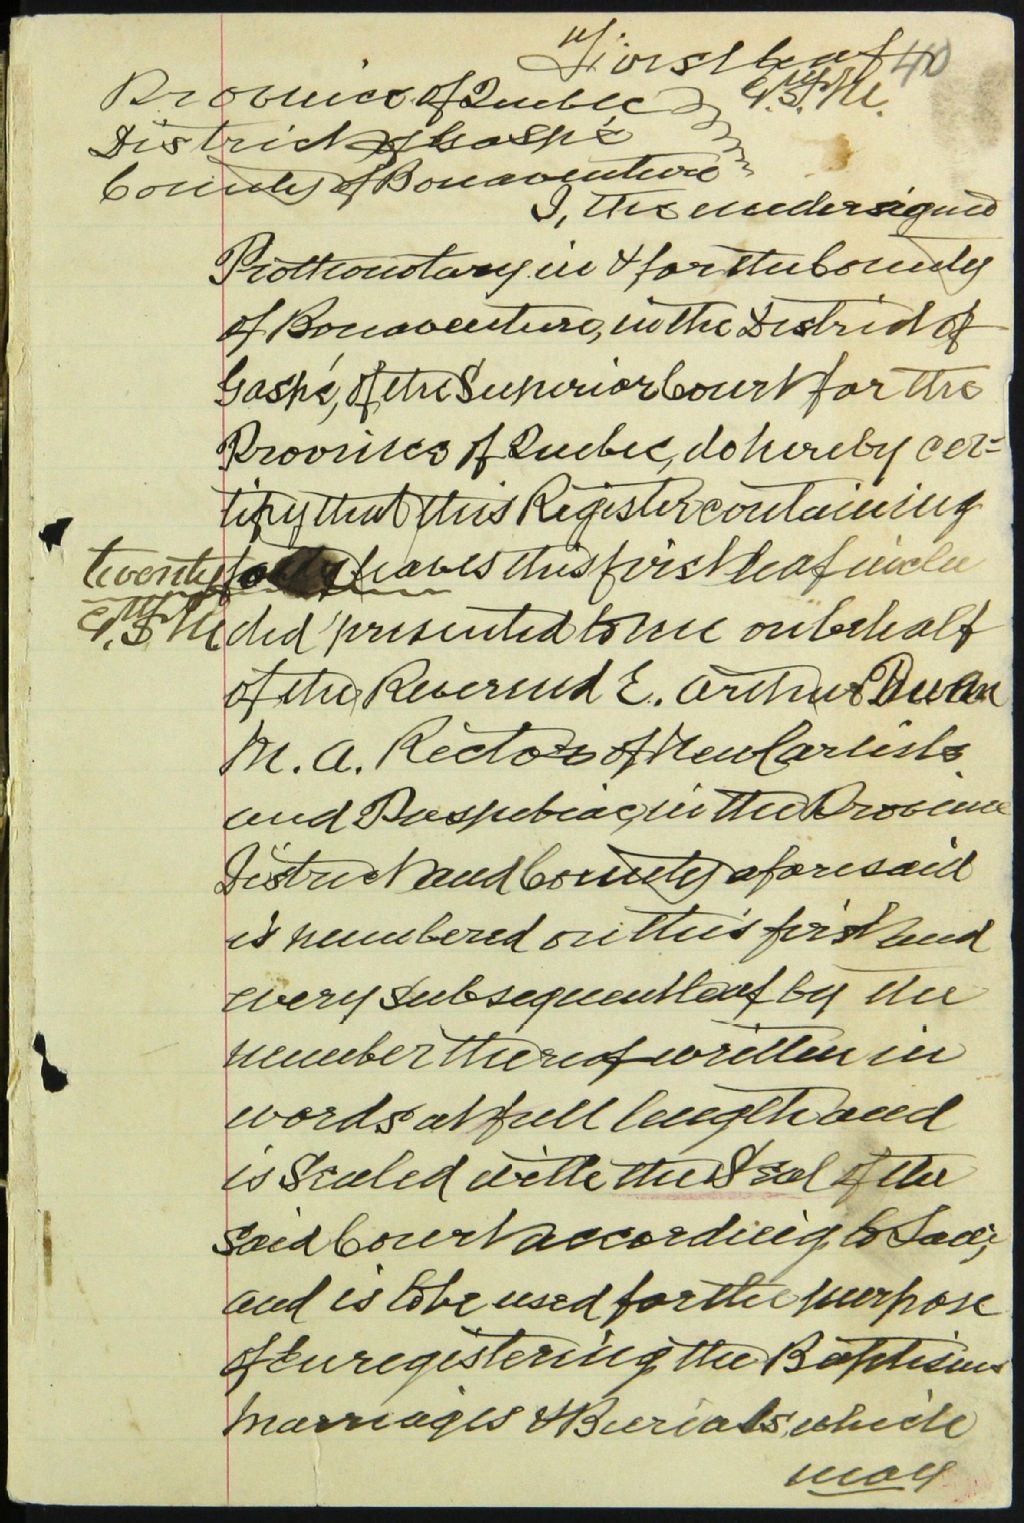 First leaf 40
Province of Quebec
District of Gaspé
County of Bonaventure
I, the undersigned
Prothonotary in & for the County
of Bonaventure, in the District of
Gaspé, of the Superior Court for the
Province of Quebec, do hereby cer=
tify that this Register containing
twenty leaves this first leaf inclu
ded presented to me on behalf
of the Reverend E. Arthur
M. A. Rector of New Carlisle
and Paspebiac, in the Province
District and County aforesaid
is numbered on this first and
every subsequent leaf by the
number thereof written in
words at full length and
is Sealed with the Seal of the
said Court according to Law,
and is to be used for the purpose
of Enregistering the Baptisms
Marriages & Burials, which
may